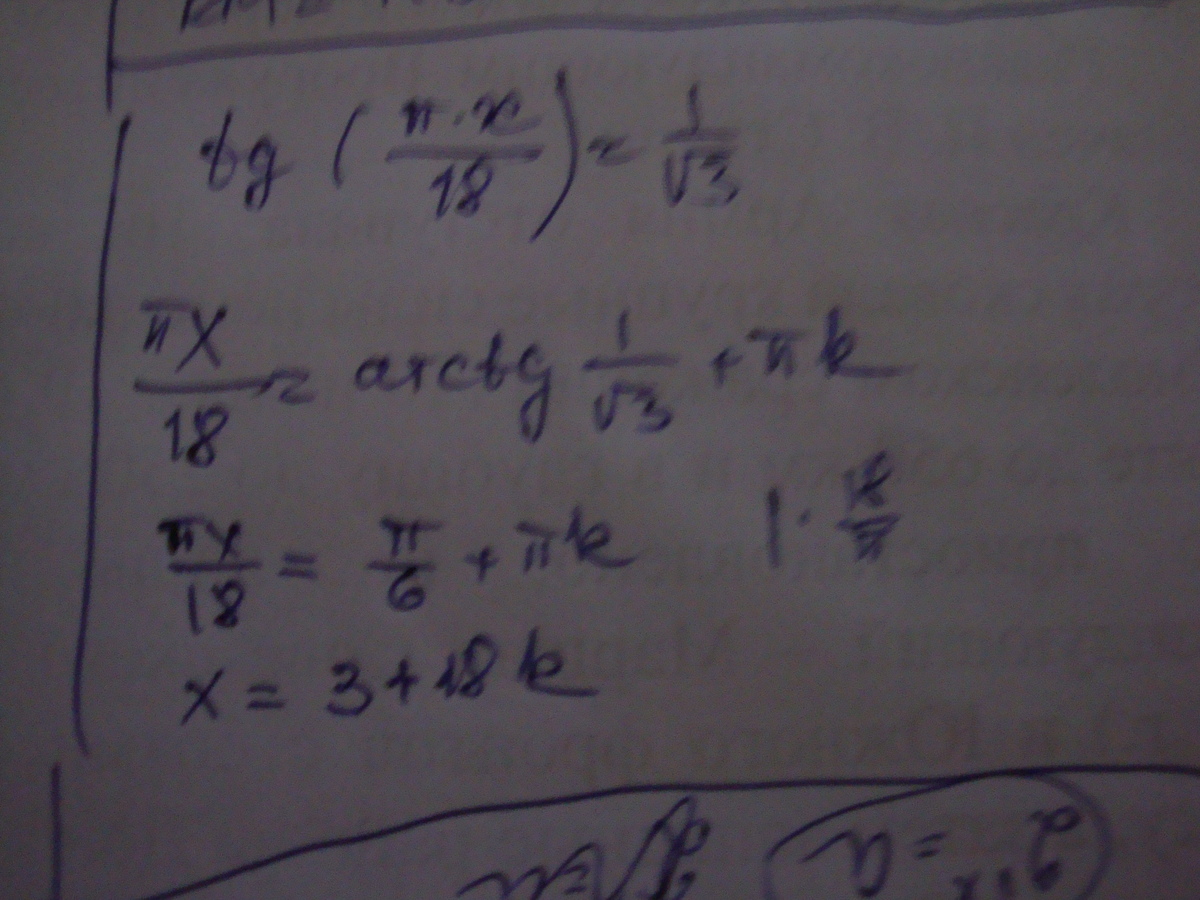 tg (π·x/18) = 1/√3
πx/18 = arctg 1/√3 + πk
πx/18 = π/6 + πk |· 18/π
x = 3 + 18k